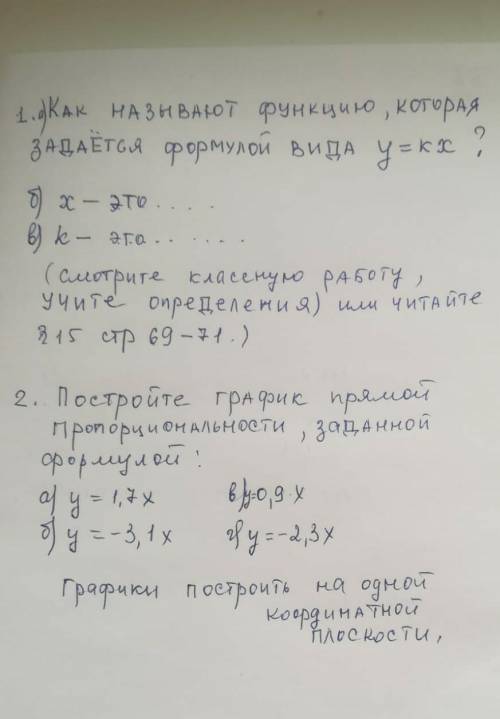 1. а) Как называют функцию, которая
задаётся формулой вида y = kx ?
б) x – это . . . .
в) k – это . . . . . .
(смотрите классную работу,
учите определения) или читайте
§ 15 стр 69 – 71.)
2. Постройте график прямой
пропорциональности, заданной
формулой:
а) y = 1,7x в) y=0,9·x
б) y = –3,1x г) y = –2,3x
Графики построить на одной
координатной
плоскости,